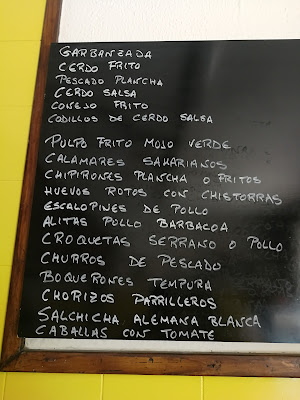 GARBANZADA
CERDO FRITO
PESCADO PLANCHA
CERDO SALSA
CONEJO FRITO
CODILLOS DE CERDO SALSA
PULPO FRITO MOJO VERDE
CALAMARES SAHARIANOS
CHIPIRONES PLANCHA O FRITOS
HUEVOS ROTOS CON CHISTORRAS
ESCALOPINES DE POLLO
ALITAS POLLO BARBACOA
CROQUETAS SERRANO O POLLO
CHURROS DE PESCADO
BOQUERONES TEMPURA
CHORIZOS PARRILLEROS
SALCHICHA ALEMANA BLANCA
CABALLAS CON TOMATE